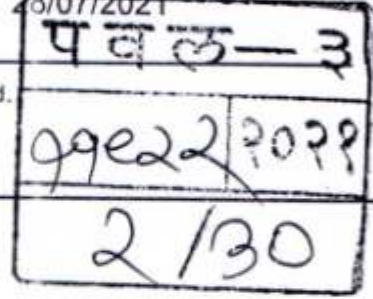 28/07/2021
प व ल — ३
d.
११९२२ २०२१
2 / 30